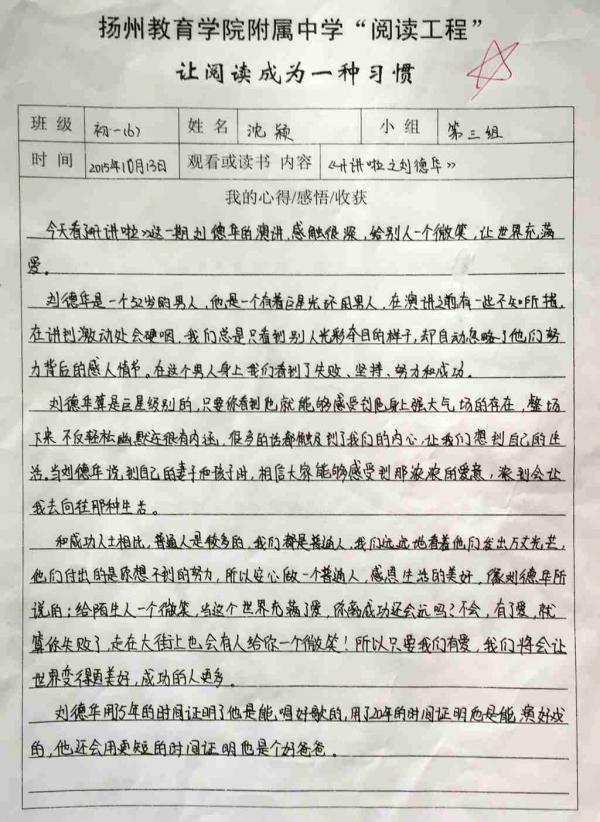 扬州教育学院附属中学“阅读工程”
让阅读成为一种习惯
班 级 初一(6) 姓 名 沈颖 小 组 第三组
时 间 2015年10月13日 观看或读书 内容 《开讲啦之刘德华》
我的心得/感悟/收获
今天看了《开讲啦》这一期刘德华的演讲,感触很深,给别人一个微笑,让世界充满
爱。
刘德华是一个52岁的男人,他是一个有着巨星光环的男人,在演讲之前有一些不知所措,
在讲到激动处会哽咽。我们总是只看到别人光彩夺目的样子,却自动忽略了他们努
力背后的感人情节。在这个男人身上我们看到了失败、坚持、努力和成功。
刘德华算是巨星级别的,只要你看到他就能够感受到他身上强大气场的存在,整场
下来不仅轻松幽默还很有内涵,很多的话都触及到了我们的内心,让我们想到自己的生
活。当刘德华说到自己的妻子和孩子时,相信大家能够感受到那浓浓的爱意,浓到会让
我去向往那种生活。
和成功人士相比,普通人是较多的,我们都是普通人,我们远远地看着他们发出万丈光芒,
他们付出的是你想不到的努力,所以安心做一个普通人,感恩生活的美好,像刘德华所
说的:给陌生人一个微笑,当这个世界充满了爱,你离成功还会远吗?不会,有了爱,就
算你失败了,走在大街上也会有人给你一个微笑!所以只要我们有爱,我们将会让
世界变得更美好,成功的人更多。
刘德华用15年的时间证明了他是能唱好歌的,用了20年的时间证明他是能演好戏
的,他还会用更短的时间证明他是个好爸爸。